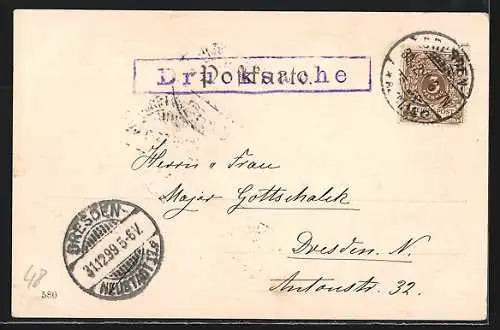 Drucksache
Postkarte.
DRESDEN
3
Herrn u Frau
Major Gottschalck
Dresden. N.
Antonstr. 32.
DRESDEN-
31.12.99 5-6V.
NEUSTADT 1.z
48
580